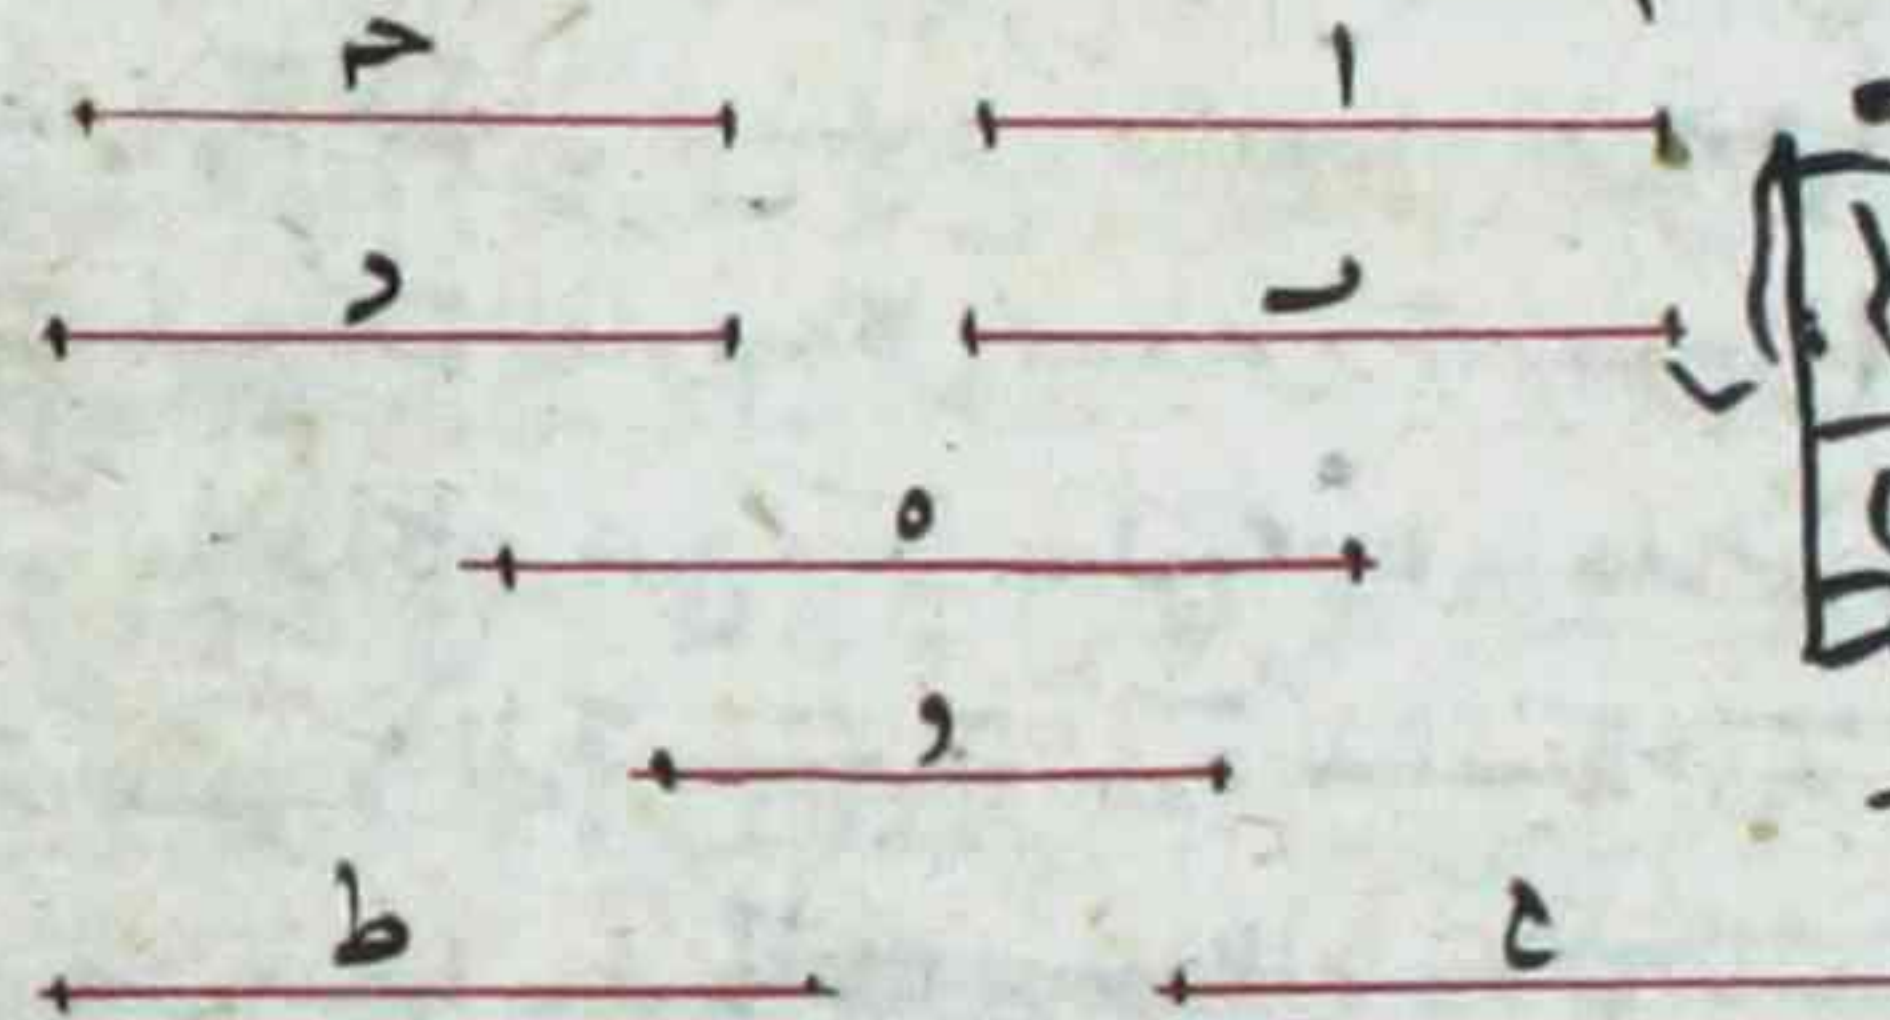 ا ح
ب د
ه
و
ح ط